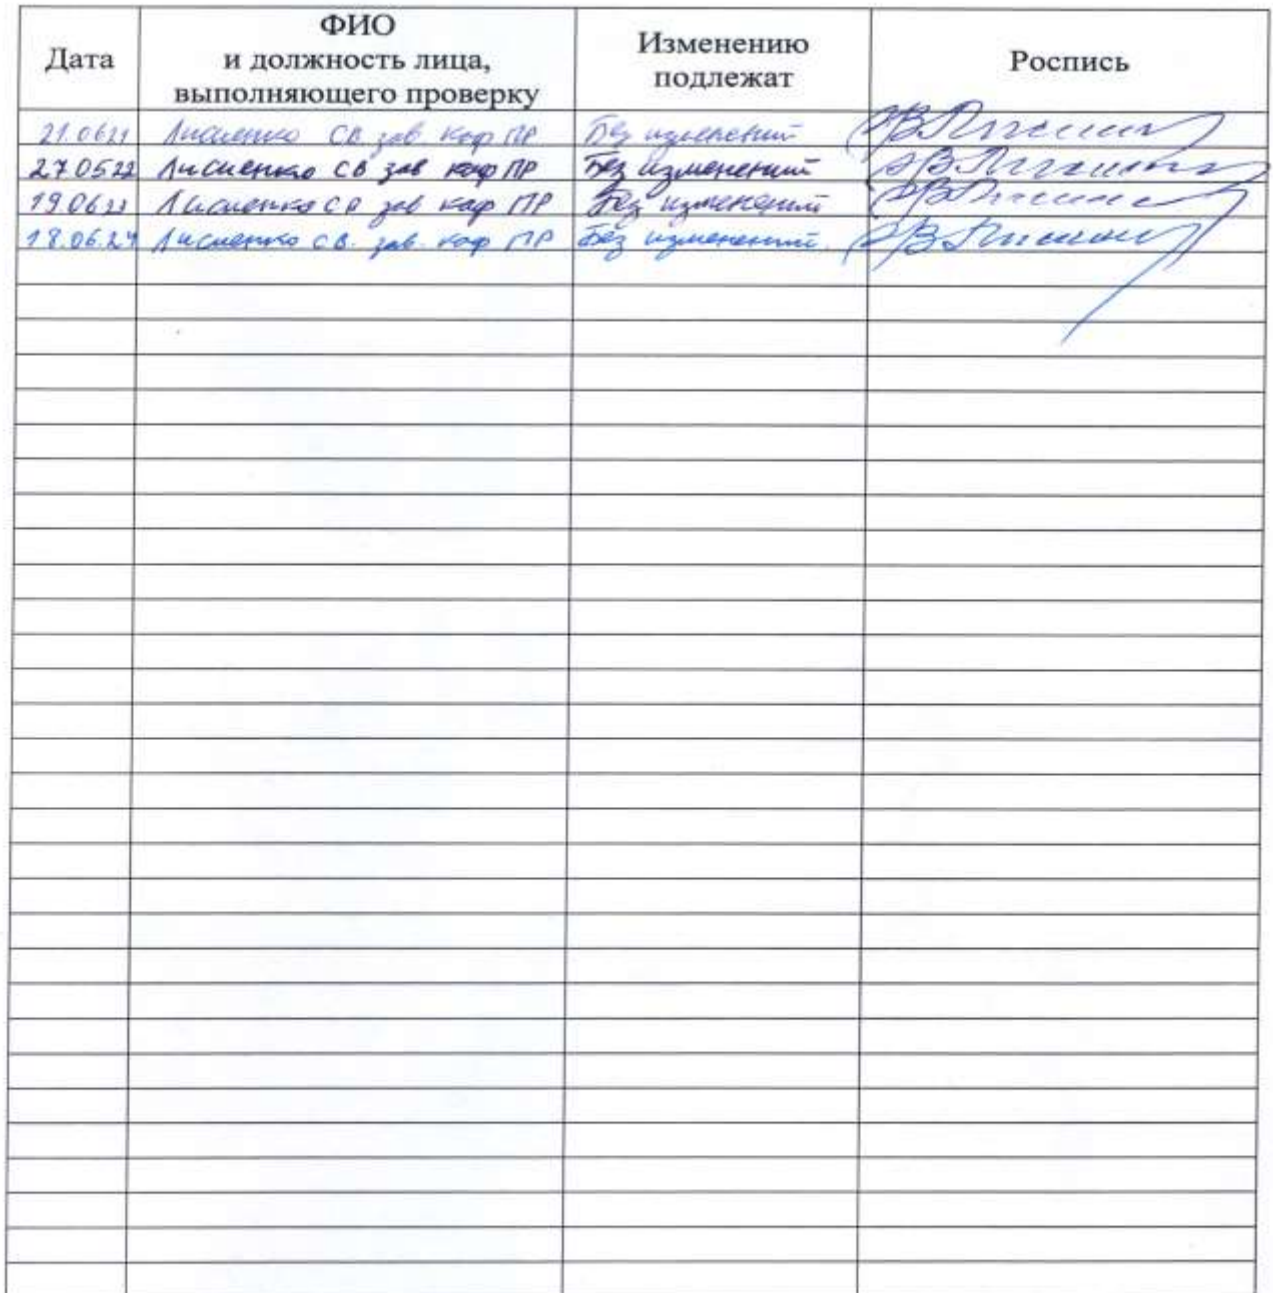 Дата
ФИО
и должность лица,
выполняющего проверку
Изменению
подлежат
Роспись
21.0621 Лисиенко СВ зав. каф ПР Без изменений
27.0522 Лисиенко СВ зав каф ПР Без изменений
19.0623 Лисиенко СВ зав каф ПР Без изменений
18.06.24 Лисиенко СВ. зав. каф ПР Без изменений.